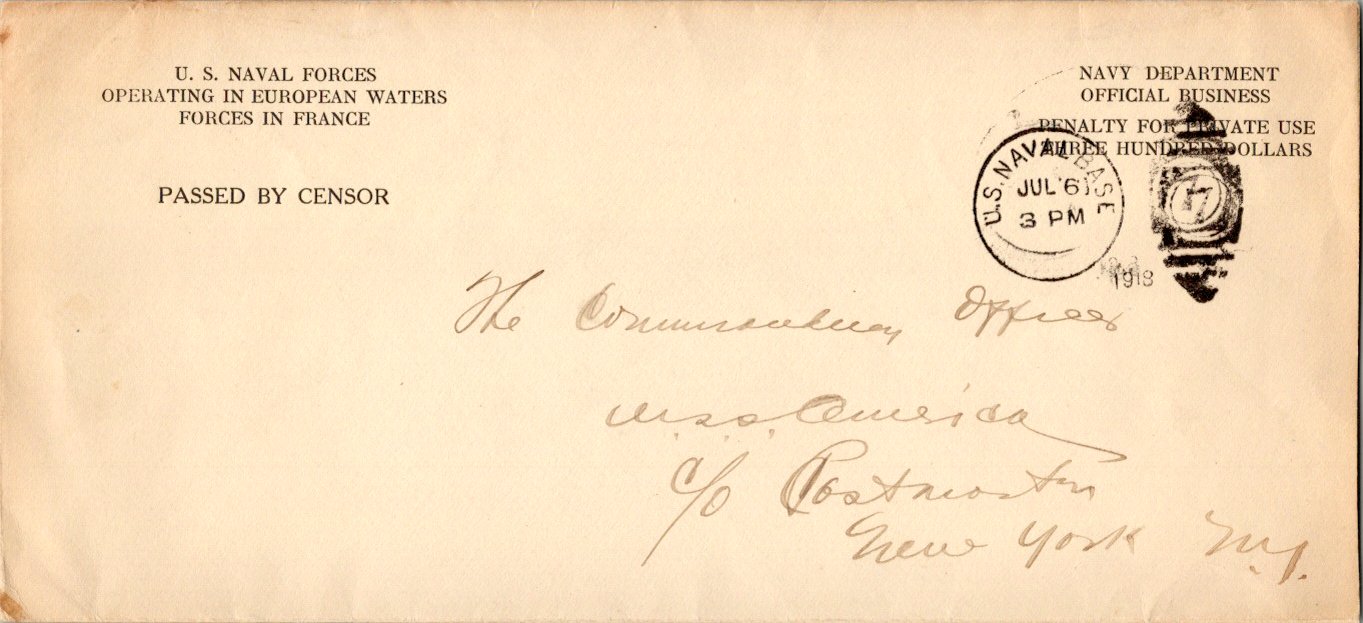 U. S. NAVAL FORCES
OPERATING IN EUROPEAN WATERS
FORCES IN FRANCE
PASSED BY CENSOR
NAVY DEPARTMENT
OFFICIAL BUSINESS
PENALTY FOR PRIVATE USE
THREE HUNDRED DOLLARS
U.S. NAVAL BASE
JUL 6
3 PM
1918
17
The Commanding Officer
U.S.S. America
c/o Postmaster
New York N.Y.